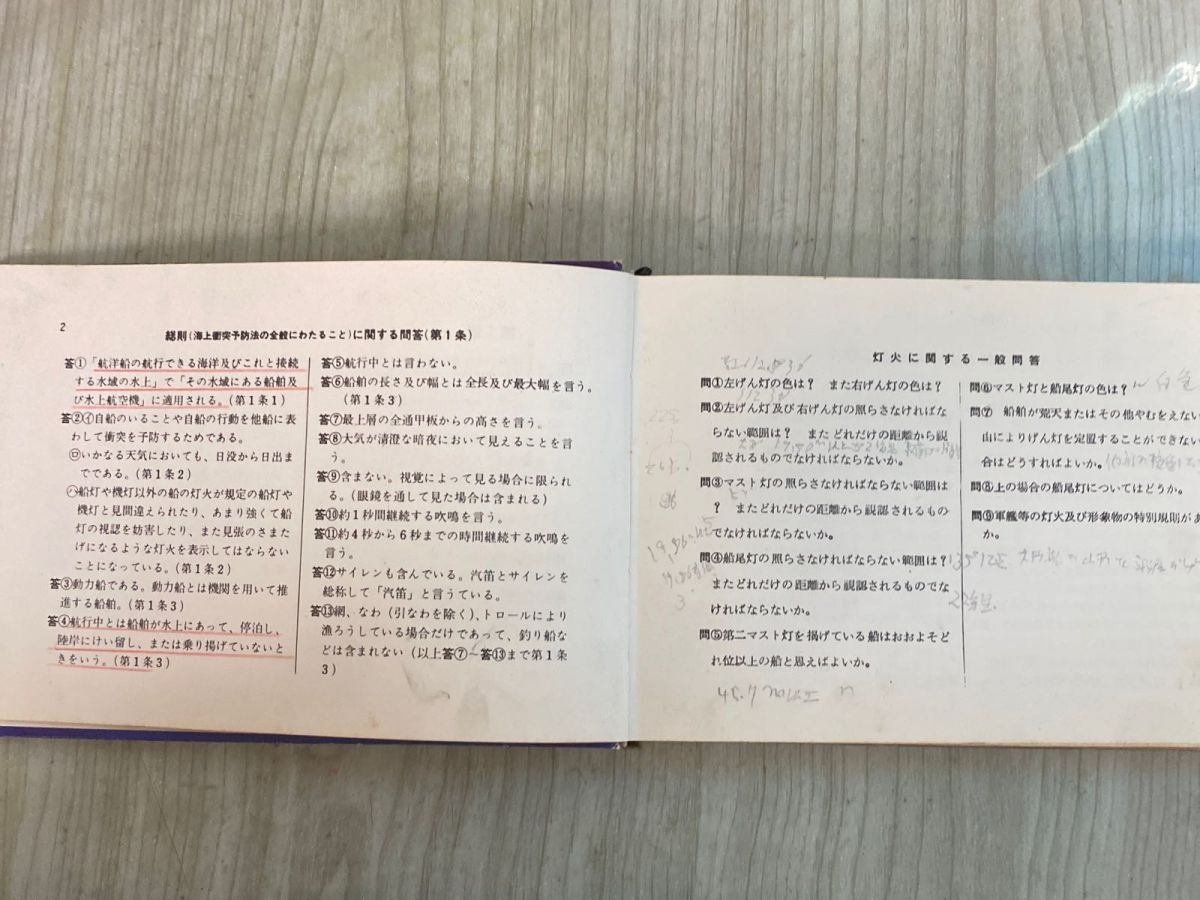 2
総則(海上衝突予防法の全般にわたること)に関する問答(第1条)
答①「航洋船の航行できる海洋及びこれと接続
する水域の水上」で「その水域にある船舶及
び水上航空機」に適用される。(第1条1)
答②㋑自船のいることや自船の行動を他船に表
わして衝突を予防するためである。
㋺いかなる天気においても、日没から日出ま
でである。(第1条2)
㋩船灯や機灯以外の船の灯火が規定の船灯や
機灯と見間違えられたり、あまり強くて船
灯の視認を妨害したり、また見張のさまた
げになるような灯火を表示してはならない
ことになっている。(第1条2)
答③動力船である。動力船とは機関を用いて推
進する船舶。(第1条3)
答④航行中とは船舶が水上にあって、停泊し、
陸岸にけい留し、または乗り揚げていないと
きをいう。(第1条3)
答⑤航行中とは言わない。
答⑥船舶の長さ及び幅とは全長及び最大幅を言う。
(第1条3)
答⑦最上層の全通甲板からの高さを言う。
答⑧大気が清澄な暗夜において見えることを言
う。
答⑨含まない。視覚によって見る場合に限られ
る。(眼鏡を通して見た場合は含まれる)
答⑩約1秒間継続する吹鳴を言う。
答⑪約4秒から6秒までの時間継続する吹鳴を
言う。
答⑫サイレンも含んでいる。汽笛とサイレンを
総称して「汽笛」と言うている。
答⑬網、なわ(引なわを除く)、トロールにより
漁ろうしている場合だけであって、釣り船な
どは含まれない(以上答⑦〜答⑬まで第1条
3)
灯火に関する一般問答
問①左げん灯の色は? また右げん灯の色は?
問②左げん灯及び右げん灯の照らさなければな
らない範囲は? またどれだけの距離から視
認されるものでなければならないか。
問③マスト灯の照らさなければならない範囲は
? またどれだけの距離から視認されるもの
でなければならないか。
問④船尾灯の照らさなければならない範囲は?
またどれだけの距離から視認されるものでな
ければならないか。
問⑤第二マスト灯を掲げている船はおおよそど
れ位以上の船と思えばよいか。
問⑥マスト灯と船尾灯の色は? 白色
問⑦ 船舶が荒天またはその他やむをえない
山によりげん灯を定置することができない
合はどうすればよいか。
問⑧上の場合の船尾灯についてはどうか。
問⑨軍艦等の灯火及び形象物の特別規則があ
か。
135°